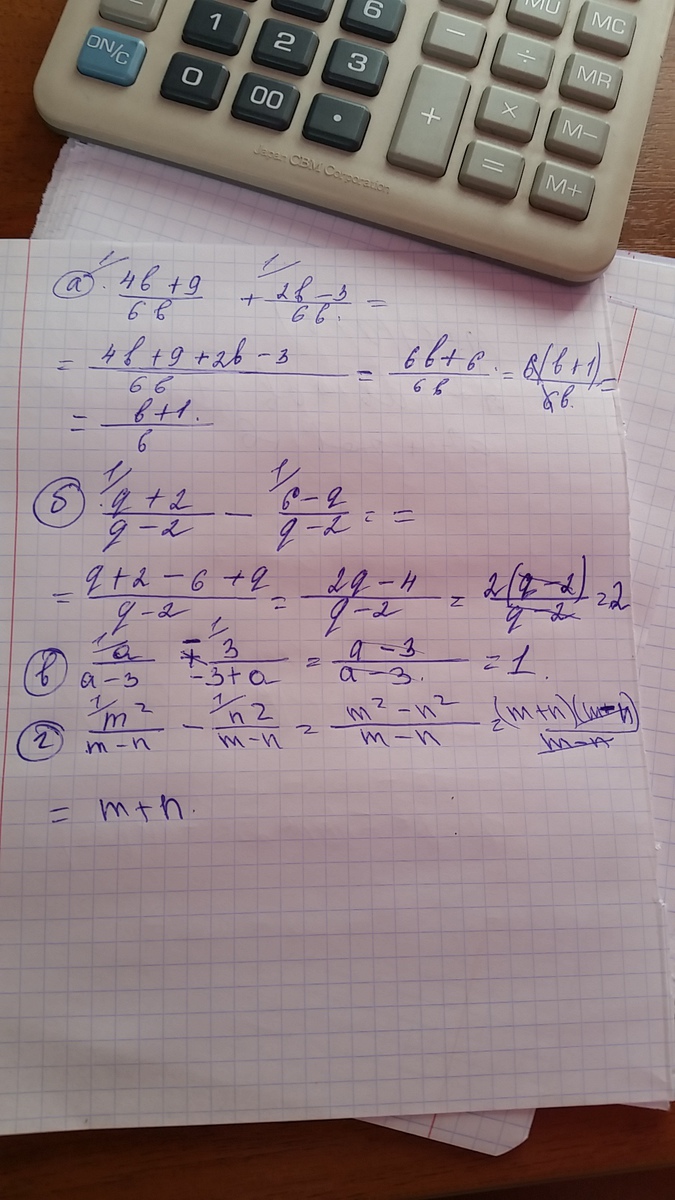 6 MU MC
ON/C 1 2 3 − ÷ MR
0 00 • + × M−
= M+
Japan CBM Corporation
а) 1/ (4b + 9)/(6b) + 1/ (2b − 3)/(6b) =
= (4b + 9 + 2b − 3)/(6b) = (6b + 6)/(6b) = 6(b + 1)/(6b) =
= (b + 1)/b
б) 1/ (q + 2)/(q − 2) − 1/ (6 − q)/(q − 2) = =
= (q + 2 − 6 + q)/(q − 2) = (2q − 4)/(q − 2) = 2(q − 2)/(q − 2) = 2
в) 1/ a/(a − 3) − 1/ 3/(−3 + a) = (a − 3)/(a − 3) = 1.
г) 1/ m²/(m − n) − 1/ n²/(m − n) = (m² − n²)/(m − n) = (m + n)(m − n)/(m − n)
= m + n.